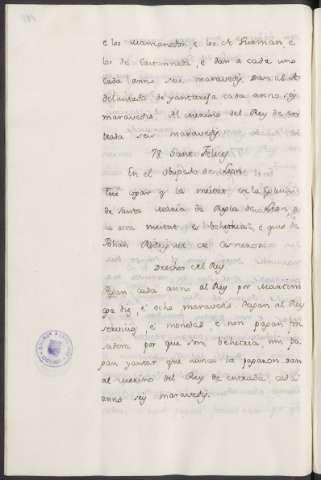 e los mamonetes e los de Guzman e
los de Castanneda, e dan a cada uno
cada anno seis maravedis Dan al A
delantado de yantareja cada anno
maravedis. Al merino del Rey de en
trada seis maravedis
78 Sant Felices
En el obispado de Leon
Este logar es la meitat de la Eglesia
de Santa Maria de Regla de Leon, e
la otra meitat es behetria, e que es de
Rodriguez de Cisneros
Derechos del Rey
Dan cada anno al Rey por Martini
ega diz e ocho maravedis Pagan al Rey
servicios, e monedas e non pagan fon
sadera por que son behetria nin pa
gan yantar que nunca la pagaron Dan
al merino del Rey de entrada cada
anno seis maravedis.